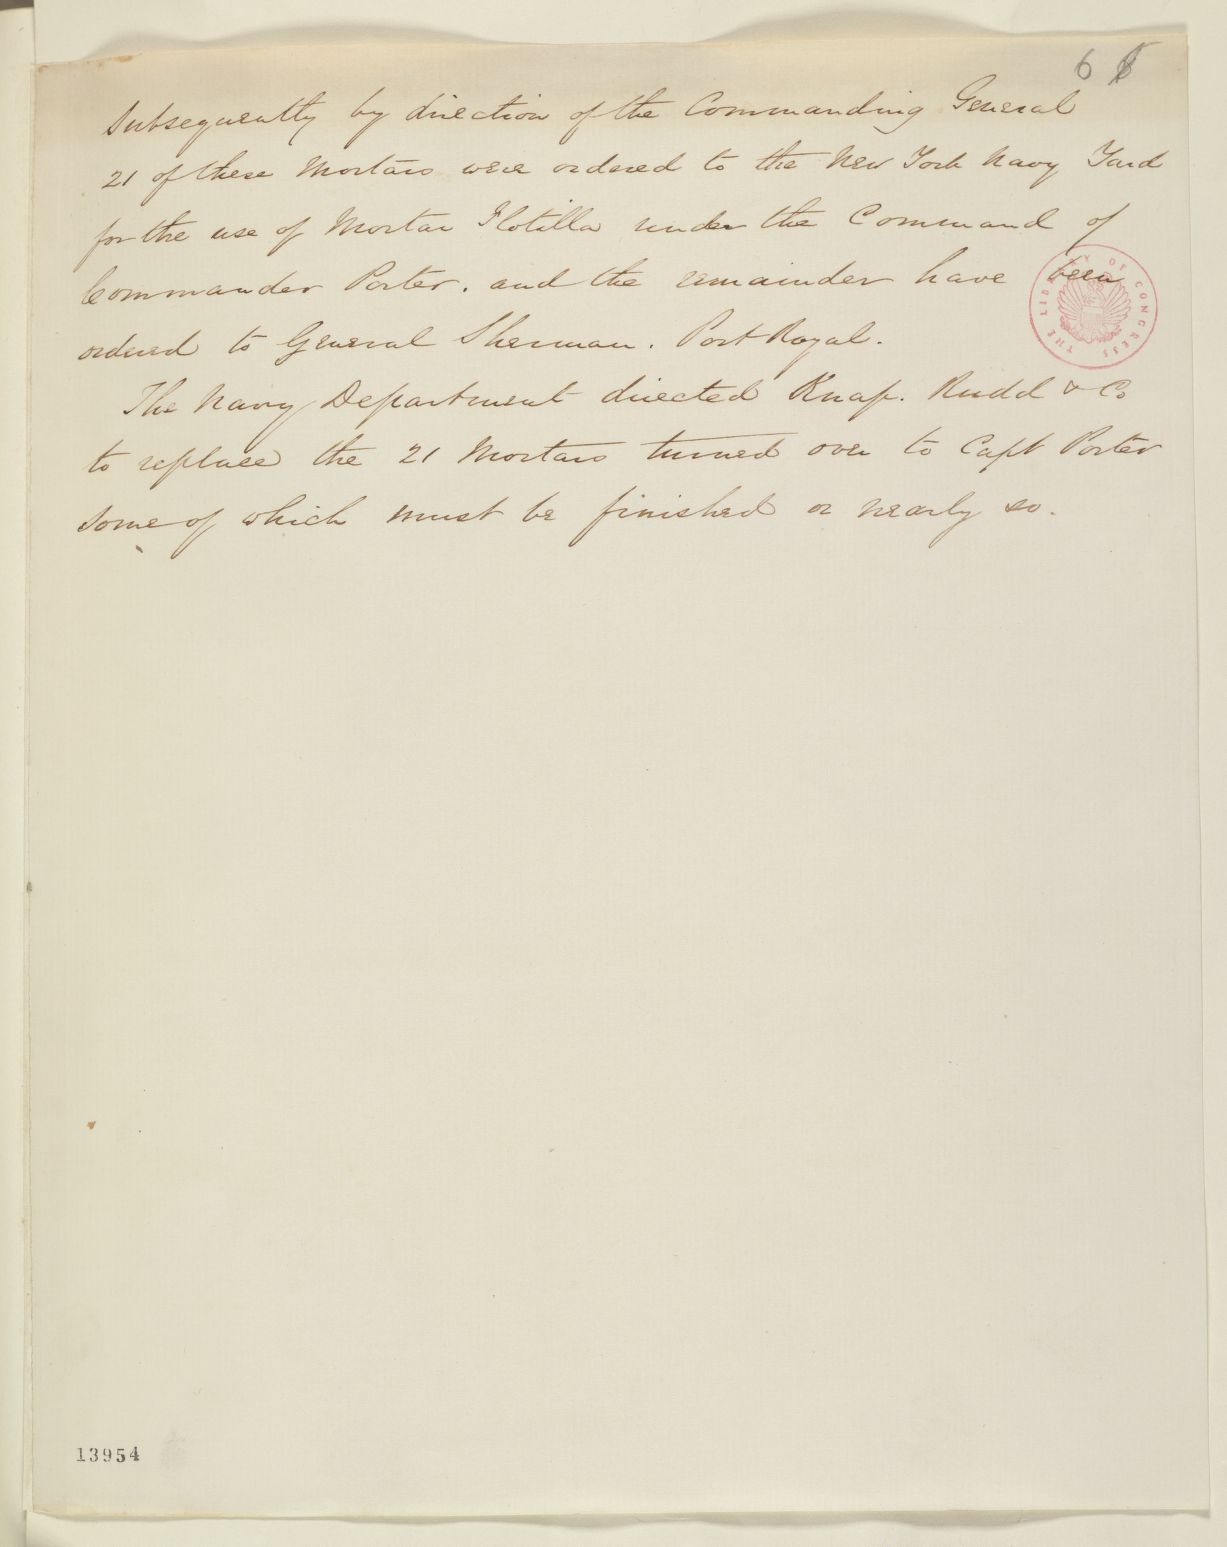 6 8
Subsequently by direction of the Commanding General
21 of these Mortars were ordered to the New York Navy Yard
for the use of Mortar Flotilla under the Command of
Commander Porter. and the remainder have been
ordered to General Sherman. Port Royal.
The Navy Department directed Knap. Rudd & Co
to replace the 21 Mortars turned over to Capt Porter
some of which must be finished or nearly so.
THE LIBRARY OF CONGRESS
13954